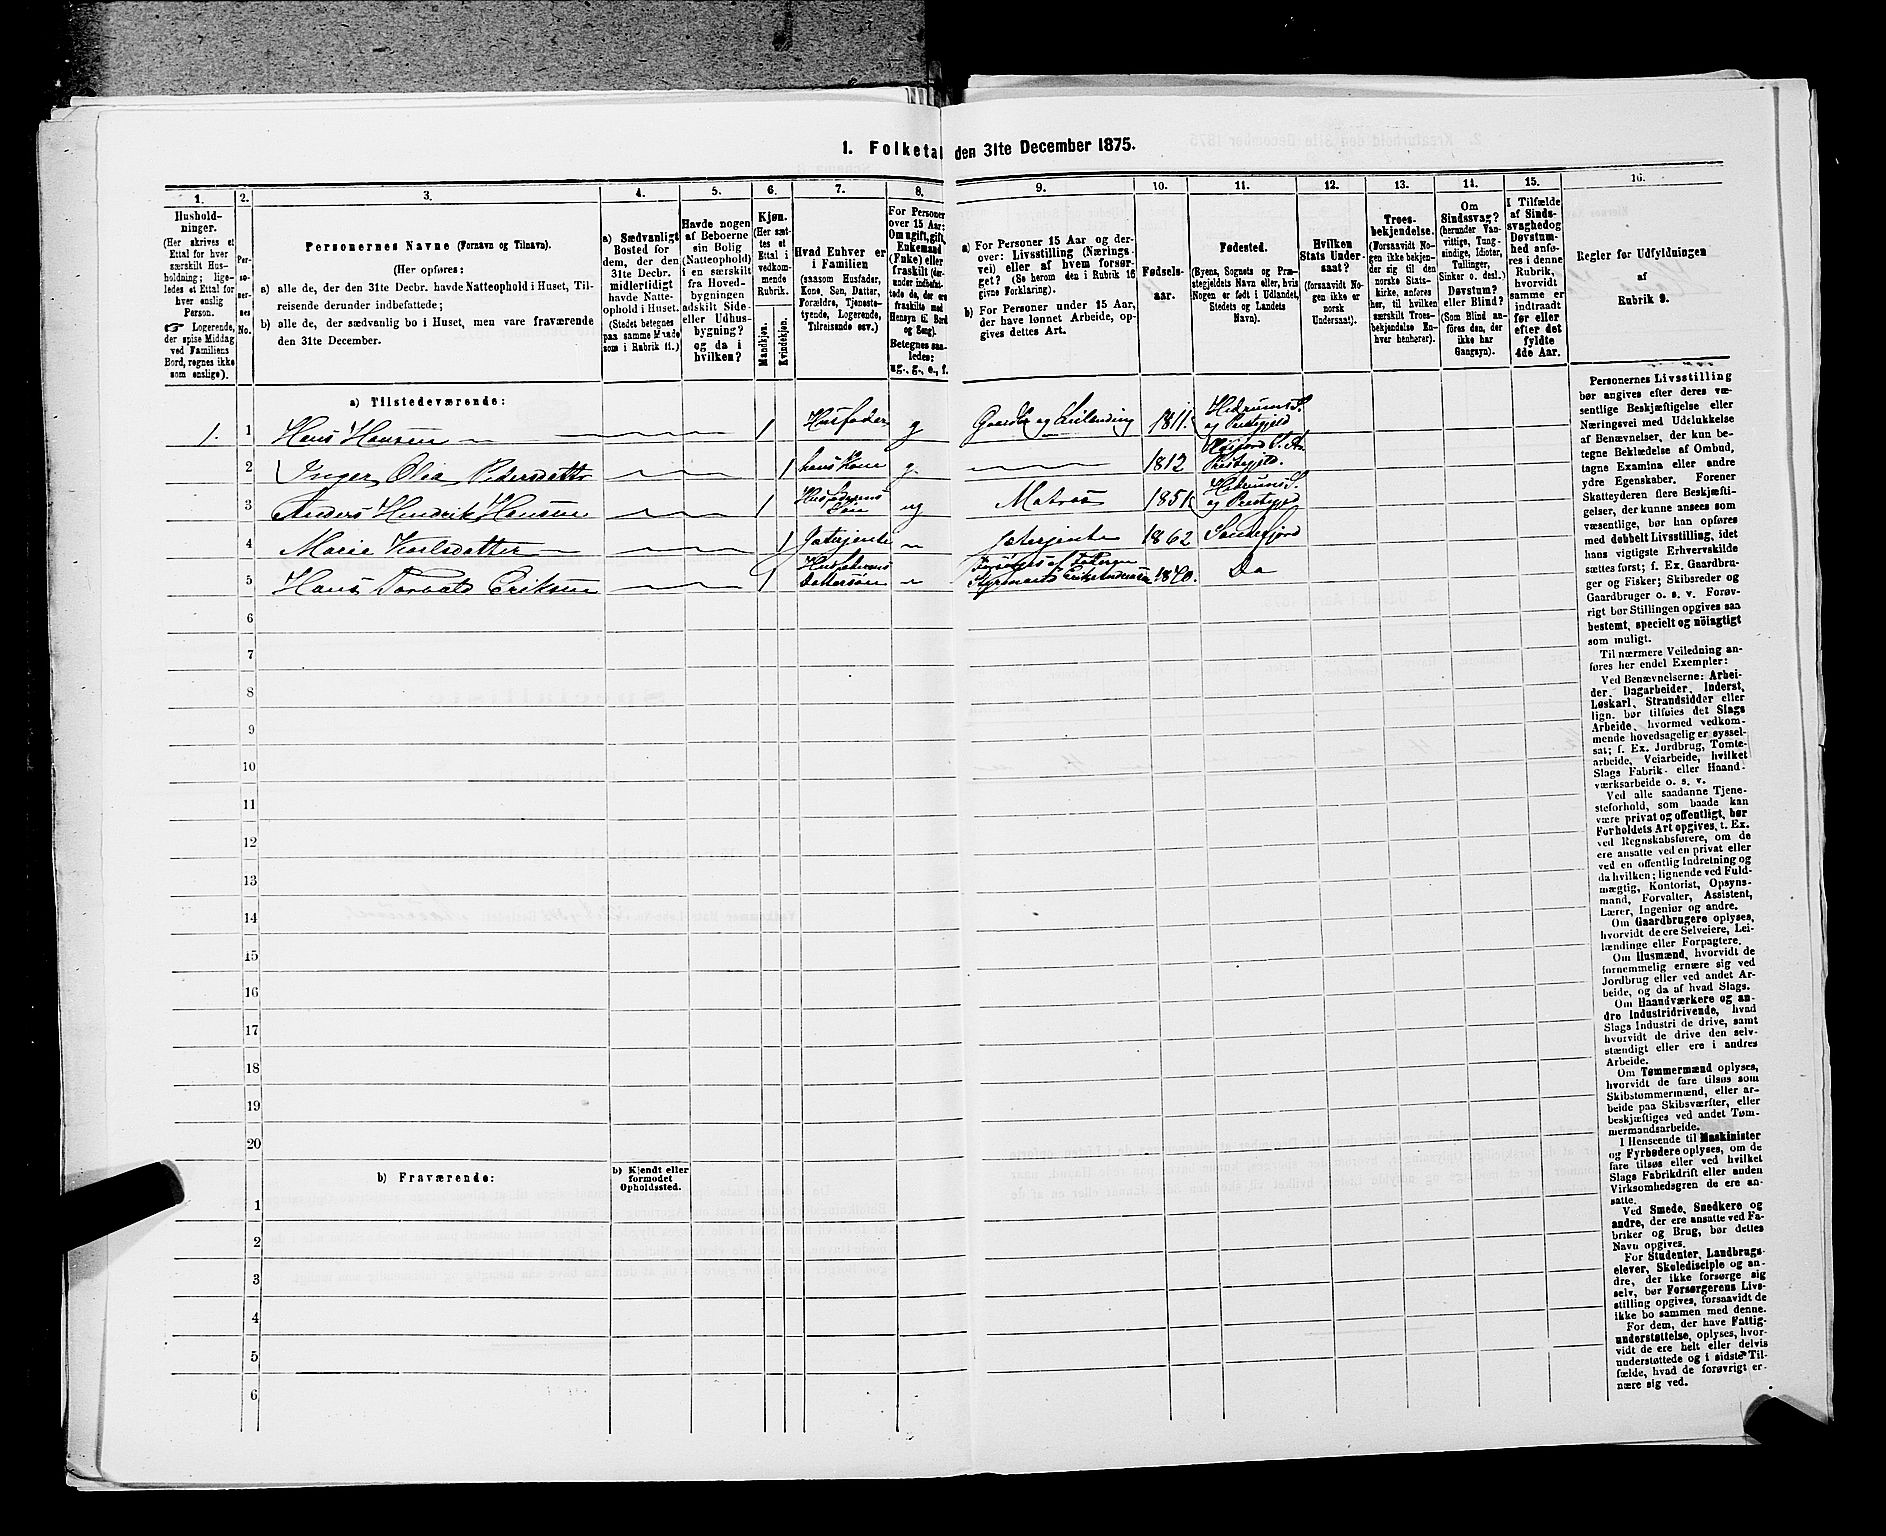 1. Folketal den 31te December 1875.
1. 2. 3. 4. 5. 6. 7. 8. 9. 10. 11. 12. 13. 14. 15. 16.
Hushold-
ninger.
(Her skrives et
Ettal for hver
særskilt Hus-
holdning; lige-
ledes et Ettal for
hver enslig
Person.
☞ Logerende,
der spise Middag
ved Familiens
Bord, regnes ikke
som enslige).
Per-
so-
ner-
nes
No.
Personernes Navne (Fornavn og Tilnavn).
(Her opføres:
a) alle de, der den 31te Decbr. havde Natteophold i Huset, Til-
reisende derunder indbefattede;
b) alle de, der sædvanlig bo i Huset, men vare fraværende
den 31te December.
a) Sædvanligt
Bosted for
dem, der den
31te Decbr.
midlertidigt
havde Natte-
ophold i Huset.
(Stedet betegnes
paa samme Maade
som i Rubrik 11.)
Havde nogen
af Beboerne
sin Bolig
(Natteophold)
i en særskilt
fra Hoved-
bygningen
adskilt Side-
eller Udhus-
bygning?
og da i
hvilken?
Kjøn.
(Her sæt-
tes et
Ettal i
vedkom-
mende
Rubrik.
Mandkjøn.
Kvindekjøn.
Hvad Enhver er
i Familien
(saasom Husfader,
Kone, Søn, Datter,
Forældre, Tjeneste-
tyende, Logerende,
Tilreisende osv.)
For Personer
over 15 Aar:
Om ugift, gift,
Enkemand
(Enke) eller
fraskilt (der-
under indbefat-
tede de, der ere
fraskilte med
Hensyn til Bord
og Seng).
Betegnes saa-
ledes:
ug., g., e., f.
a) For Personer 15 Aar og der-
over: Livsstilling (Nærings-
vei) eller af hvem forsør-
get? (Se herom den i Rubrik 16
givne Forklaring).
b) For Personer under 15 Aar,
der have lønnet Arbeide, op-
gives dettes Art.
Fødsels-
aar.
Fødested.
(Byens, Sognets og Præ-
stegjeldets Navn eller, hvis
Nogen er født i Udlandet,
Stedets og Landets
Navn).
Hvilken
Stats Under-
saat?
(forsaavidt No-
gen ikke er
norsk
Undersaat).
Troes-
bekjendelse.
(Forsaavidt No-
gen ikke bekjen-
der sig til den
norske Stats-
kirke, anføres
her, til hvilken
særskilt Troes-
bekjendelse En-
hver henhører).
Om
Sindssvag?
(herunder Van-
vittige, Tung-
sindige, Idioter,
Tullinger,
Sinker o. desl.)
Døvstum?
eller Blind?
(Som Blind an-
føres den, der
ikke har
Gangsyn).
I Tilfælde
af Sinds-
svaghed og
Døvstum-
hed anfø-
res i denne
Rubrik,
hvorvidt
samme er
indtraadt
før eller
efter det
fyldte
4de Aar.
Regler for Udfyldningen
af
Rubrik 9.
a) Tilstedeværende:
1. 1 Hans Hansen 1 Husfader g Gaardbr og Leilending 1811. Hedrums S. og Prestegjeld
2 Inger Olia Pedersdatter 1 hans Kone g. 1812 Prestegjeld.
3 Anders Hendrik Hansen 1 Husfaderens Søn ug Matros 1851 Hedrums S. og Prestegjeld
4 Marie Karlsdatter 1 Gjæterjente 1862 Sandefjord
5 Hans Torvald Eriksen 1 Husfaderens Dattersøn Forsørges af Faderen Styrmand 1870. Do
6
7
8
9
10
11
12
13
14
15
16
17
18
19
20
b) Fraværende:
b) Kjendt eller
formodet
Opholdssted.
1
2
3
4
5
6
Personernes Livsstilling
bør angives efter deres væ-
sentlige Beskjæftigelse eller
Næringsvei med Udelukkelse
af Benævnelser, der kun be-
tegne Beklædelse af Ombud,
tagne Examina eller andre
ydre Egenskaber. Forener
Skatteyderen flere Beskjæfti-
gelser, der kunne ansees som
væsentlige, bør han opføres
med dobbelt Livsstilling, idet
hans vigtigste Erhvervskilde
sættes først; f. Ex. Gaardbru-
ger og Fisker; Skibsreder og
Gaardbruger o. s. v. Forøv-
rigt bør Stillingen opgives saa
bestemt, specielt og nöiagtigt
som muligt.
Til nærmere Veiledning an-
føres her endel Exempler:
Ved Benævnelserne: Arbei-
der, Dagarbeider, Inderst,
Løskarl, Strandsidder eller
lign. bør tilføies det Slags
Arbeide, hvormed vedkom-
mende hovedsagelig er syssel-
sat; f. Ex. Jordbrug, Tomte-
arbeide, Veiarbeide, hvilket
Slags Fabrik- eller Haand-
værksarbeide o. s. v.
Ved alle saadanne Tjene-
steforhold, som baade kan
være privat og offentligt, bør
Forholdets Art opgives, t. Ex.
ved Regnskabsførere, om de
ere ansatte ved en privat eller
ved en offentlig Indretning og
da hvilken; lignende ved Fuld-
mægtig, Kontorist, Opsyns-
mand, Forvalter, Assistent,
Lærer, Ingeniør og andre.
Om Gaardbrugere oplyses,
hvorvidt de ere Selveiere, Lei-
lændinge eller Forpagtere.
Om Husmænd, hvorvidt de
fornemmelig ernære sig ved
Jordbrug eller ved andet Ar-
beide, og da af hvad Slags.
Om Haandværkere og an-
dre Industridrivende, hvad
Slags Industri de drive, samt
hvorvidt de drive den selv-
stændigt eller ere i andres
Arbeide.
Om Tømmermænd oplyses,
hvorvidt de fare tilsøs som
Skibstømmermænd, eller ar-
beide paa Skibsværfter, eller
beskjæftiges ved andet Tøm-
mermandsarbeide.
I Henseende til Maskinister
og Fyrbødere oplyses, om de
fare tilsøs eller ved hvilket
Slags Fabrikdrift eller anden
Virksomhedsgren de ere an-
satte.
Ved Smede, Snedkere og
andre, der ere ansatte ved Fa-
briker og Brug, bør dettes
Navn opgives.
For Studenter, Landbrugs-
elever, Skoledisciple og an-
dre, der ikke forsørge sig
selv, bør Forsørgerens Livs-
stilling opgives, forsaavidt de
ikke bo sammen med denne.
For dem, der have Fattig-
understøttelse, oplyses, hvor-
vidt de ere helt eller delvis
understøttede og i sidste Til-
fælde, hvad de forøvrigt er-
nære sig ved.